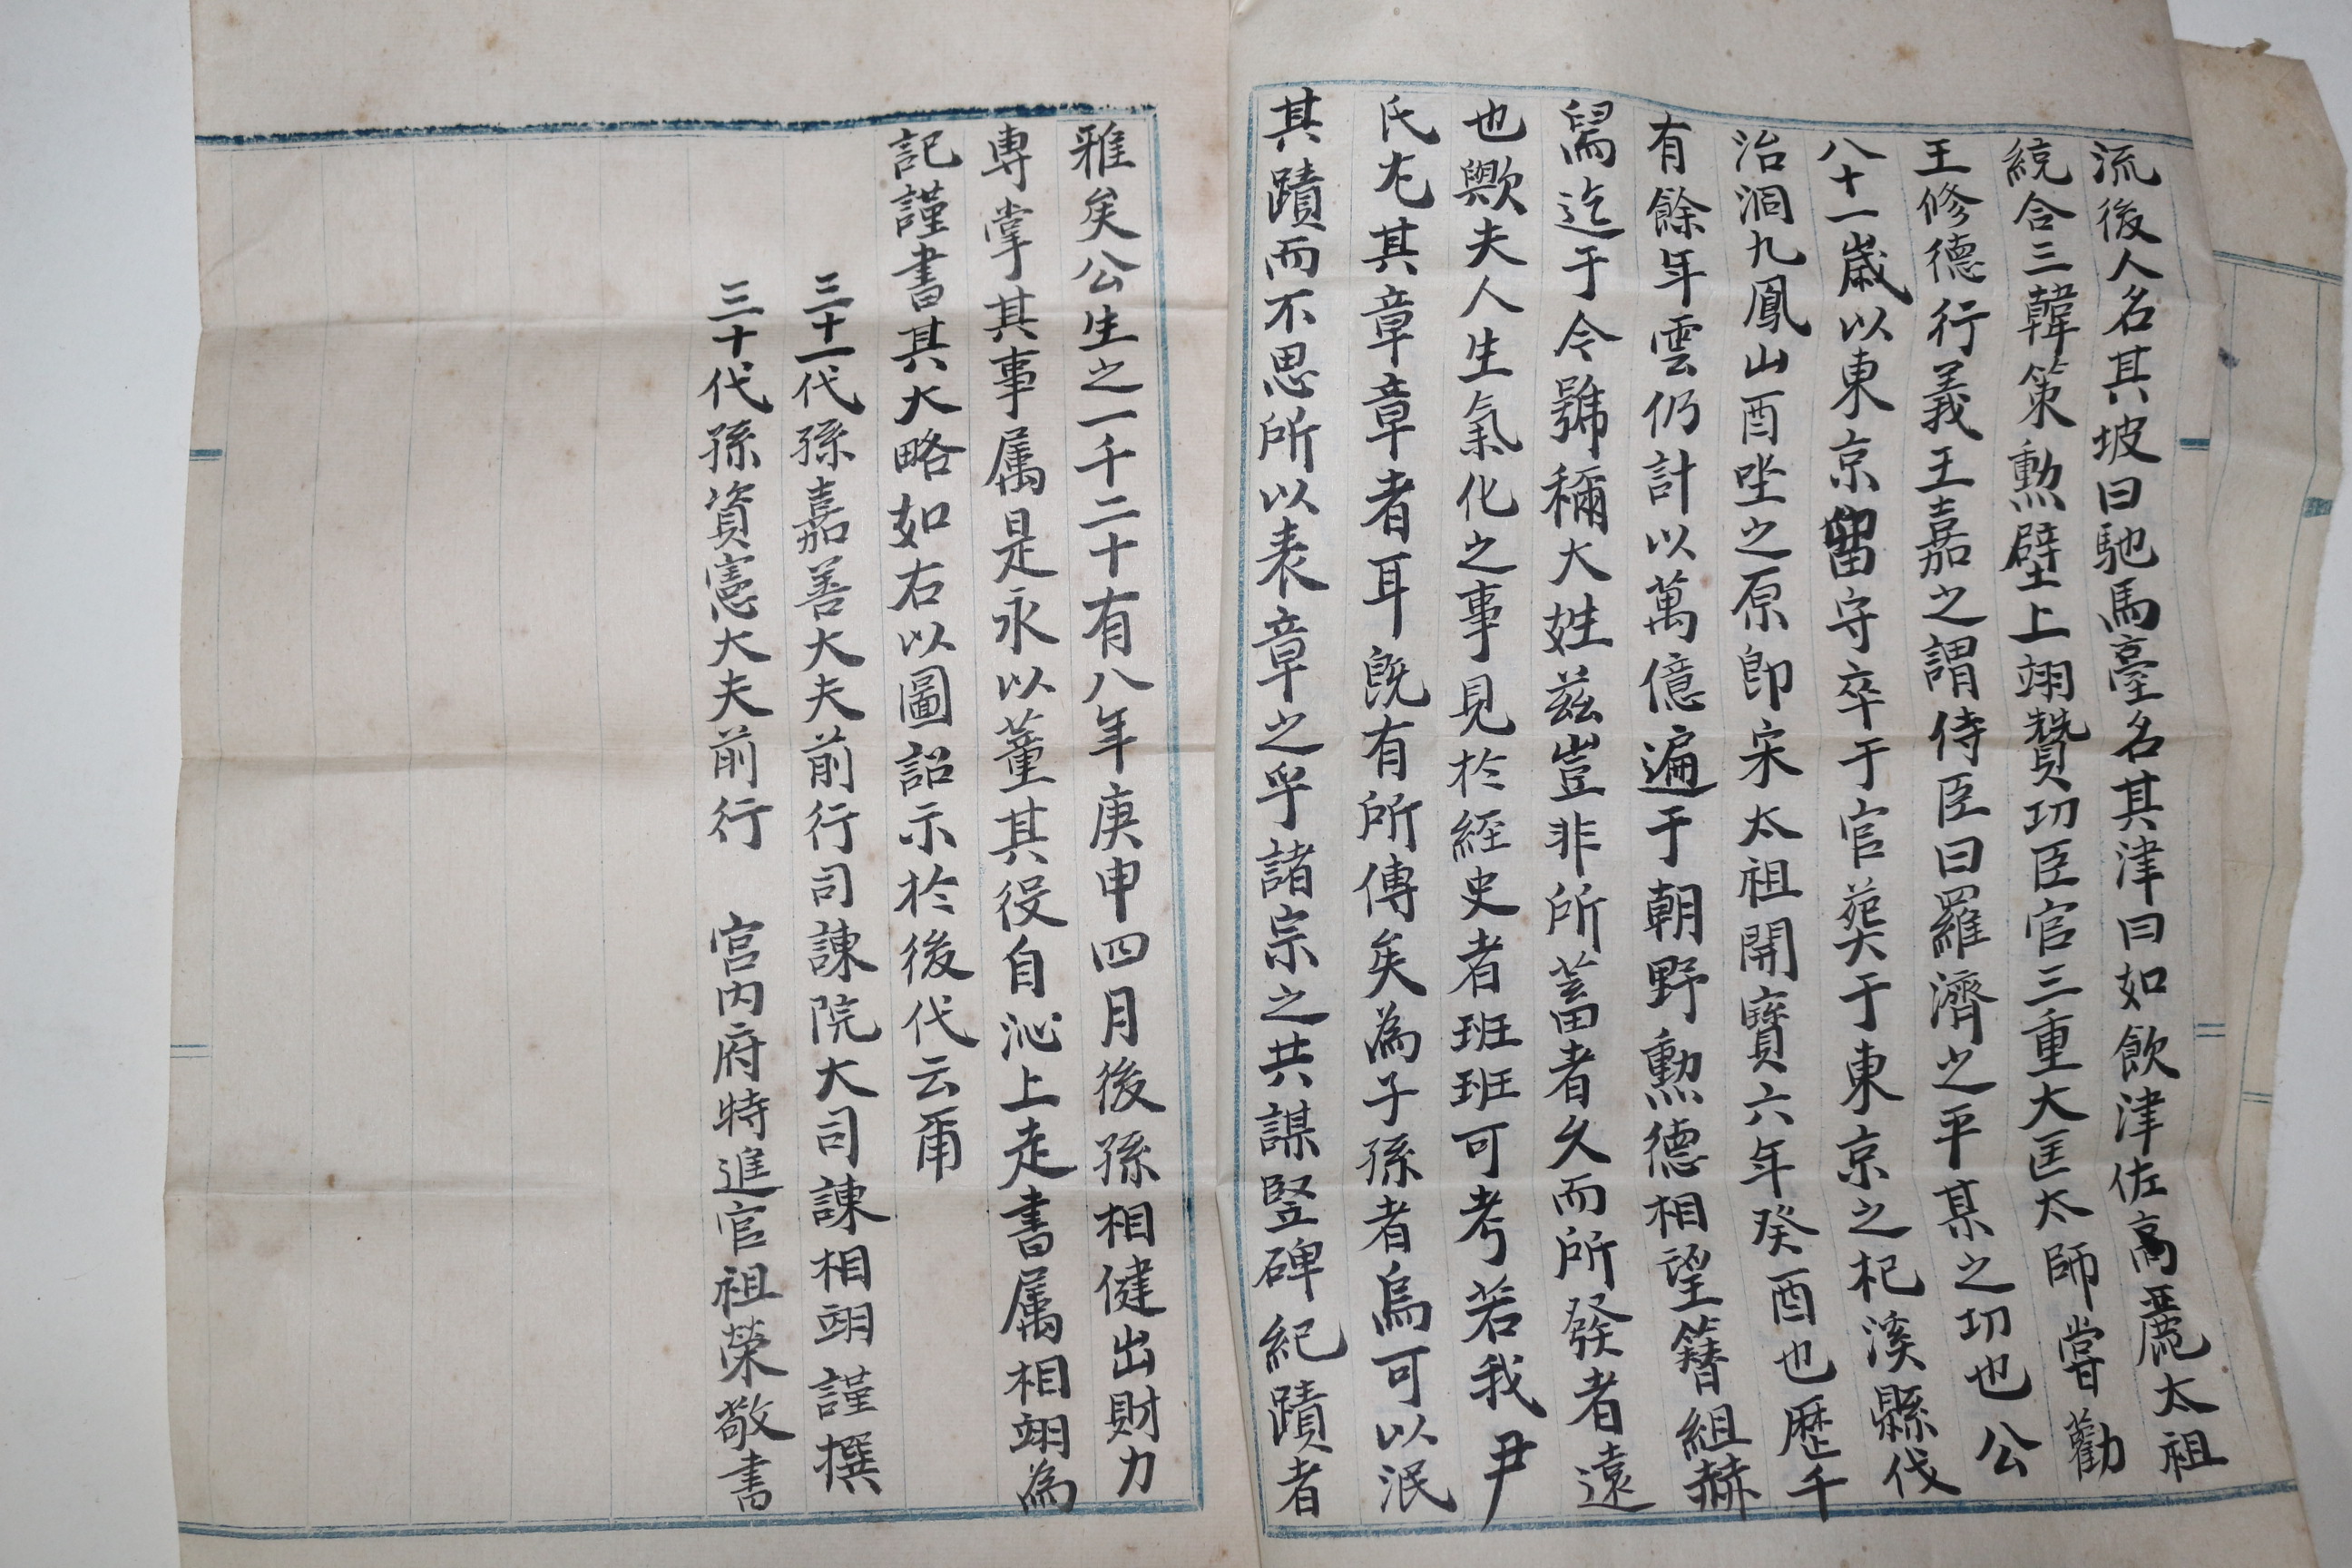 流後人名其坡曰馳馬臺名其津曰如飮津佐高麗太祖
統合三韓策勲壁上翊贊功臣官三重大匡太師嘗勸
王修德行義王嘉之謂侍臣曰羅濟之平某之功也公
八十一歲以東京留守卒于官葬于東京之杞溪縣伐
治洞九鳳山酉坐之原卽宋太祖開寶六年癸酉也歷千
有餘年雲仍計以萬億遍于朝野勲德相望簪組赫
舃迄于今號稱大姓玆豈非所蓄者久而所發者遠
也歟夫人生氣化之事見於經史者班班可考若我尹
氏尤其章章者耳旣有所傳矣為子孫者烏可以泯
其蹟而不思所以表章之乎諸宗之共謀竪碑紀蹟者
雅矣公生之一千二十有八年庚申四月後孫相健出財力
專掌其事属是永以董其役自沁上走書属相翊為
記謹書其大略如右以圖詔示於後代云甭
三十一代孫嘉善大夫前行司諫院大司諫相翊謹撰
三十代孫資憲大夫前行 宮內府特進官祖榮敬書